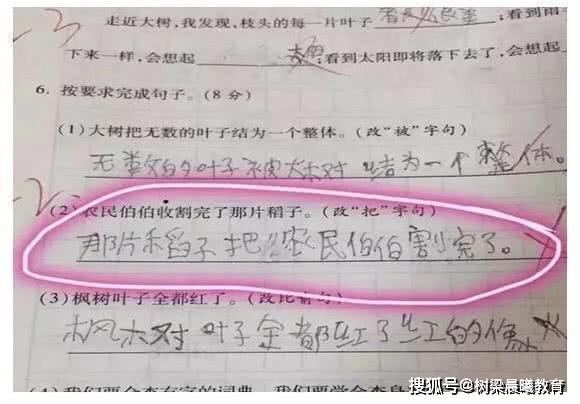 走近大树，我发现，枝头的每一片叶子；看到雨
下来一样，会想起；看到太阳即将落下去了，会想起
6. 按要求完成句子。(8 分)
(1)大树把无数的叶子结为一个整体。(改“被”字句)
无数的叶子被大树结为一个整体。
(2)农民伯伯收割完了那片稻子。(改“把”字句)
那片稻子把农民伯伯割完了。
(3)枫树叶子全都红了。(改比喻句)
枫树叶子全都红了红的像
搜狐号@树梁晨曦教育